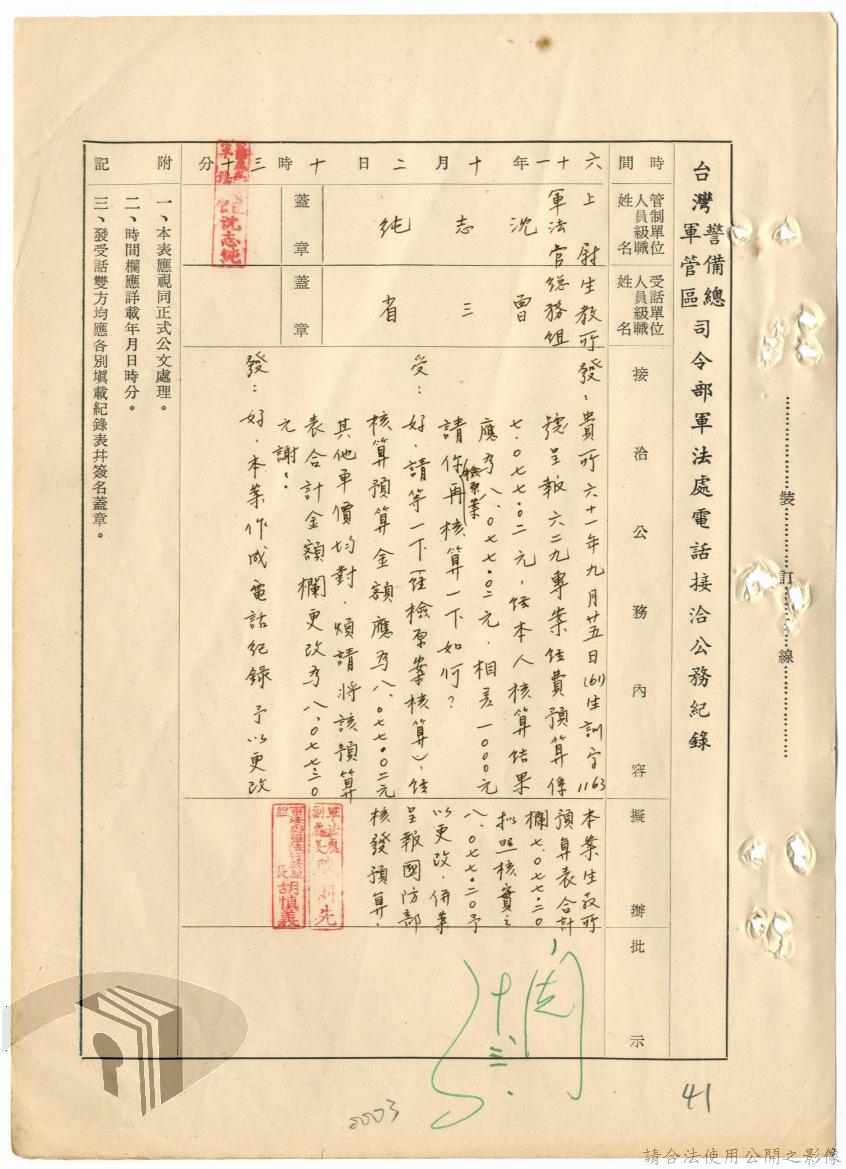 台灣警備總軍管區司令部軍法處電話接洽公務紀錄
時間
六十一年十月二日十時三十分
管制單位人員級職姓名
上尉軍法官
沈志純
蓋章
受話單位人員級職姓名
生教所總務組
曾三省
蓋章
接洽公務內容
發:貴所六十一年九月廿五日(61)生訓字1163
號呈報六二九專案經費預算係
七.〇七七.〇二元,經本人核算結果
應為八.〇七七.〇二元.相差一〇〇〇元
請你再檢原案核算一下如何?
受:好.請等一下(經檢原案核算),經
核算預算金額應為八.〇七七.〇二元
其他單價均對.煩請將該預算
表合計金額欄更改為八.〇七七.二〇
元謝:
發:好.本案作成電話紀錄予以更改
擬辦
本案生教所
預算表合計
欄七.〇七七.二〇
擬照核實之
八.〇七七.二〇予
以更改.併案
呈報國防部
核發預算.
軍法處副處長
胡慎義
批示
十.三.
附記
一、本表應視同正式公文處理。
二、時間欄應詳載年月日時分。
三、發受話雙方均應各別填載紀錄表幷簽名蓋章。
沈志純
裝訂線
0003
41
請合法使用公開之影像